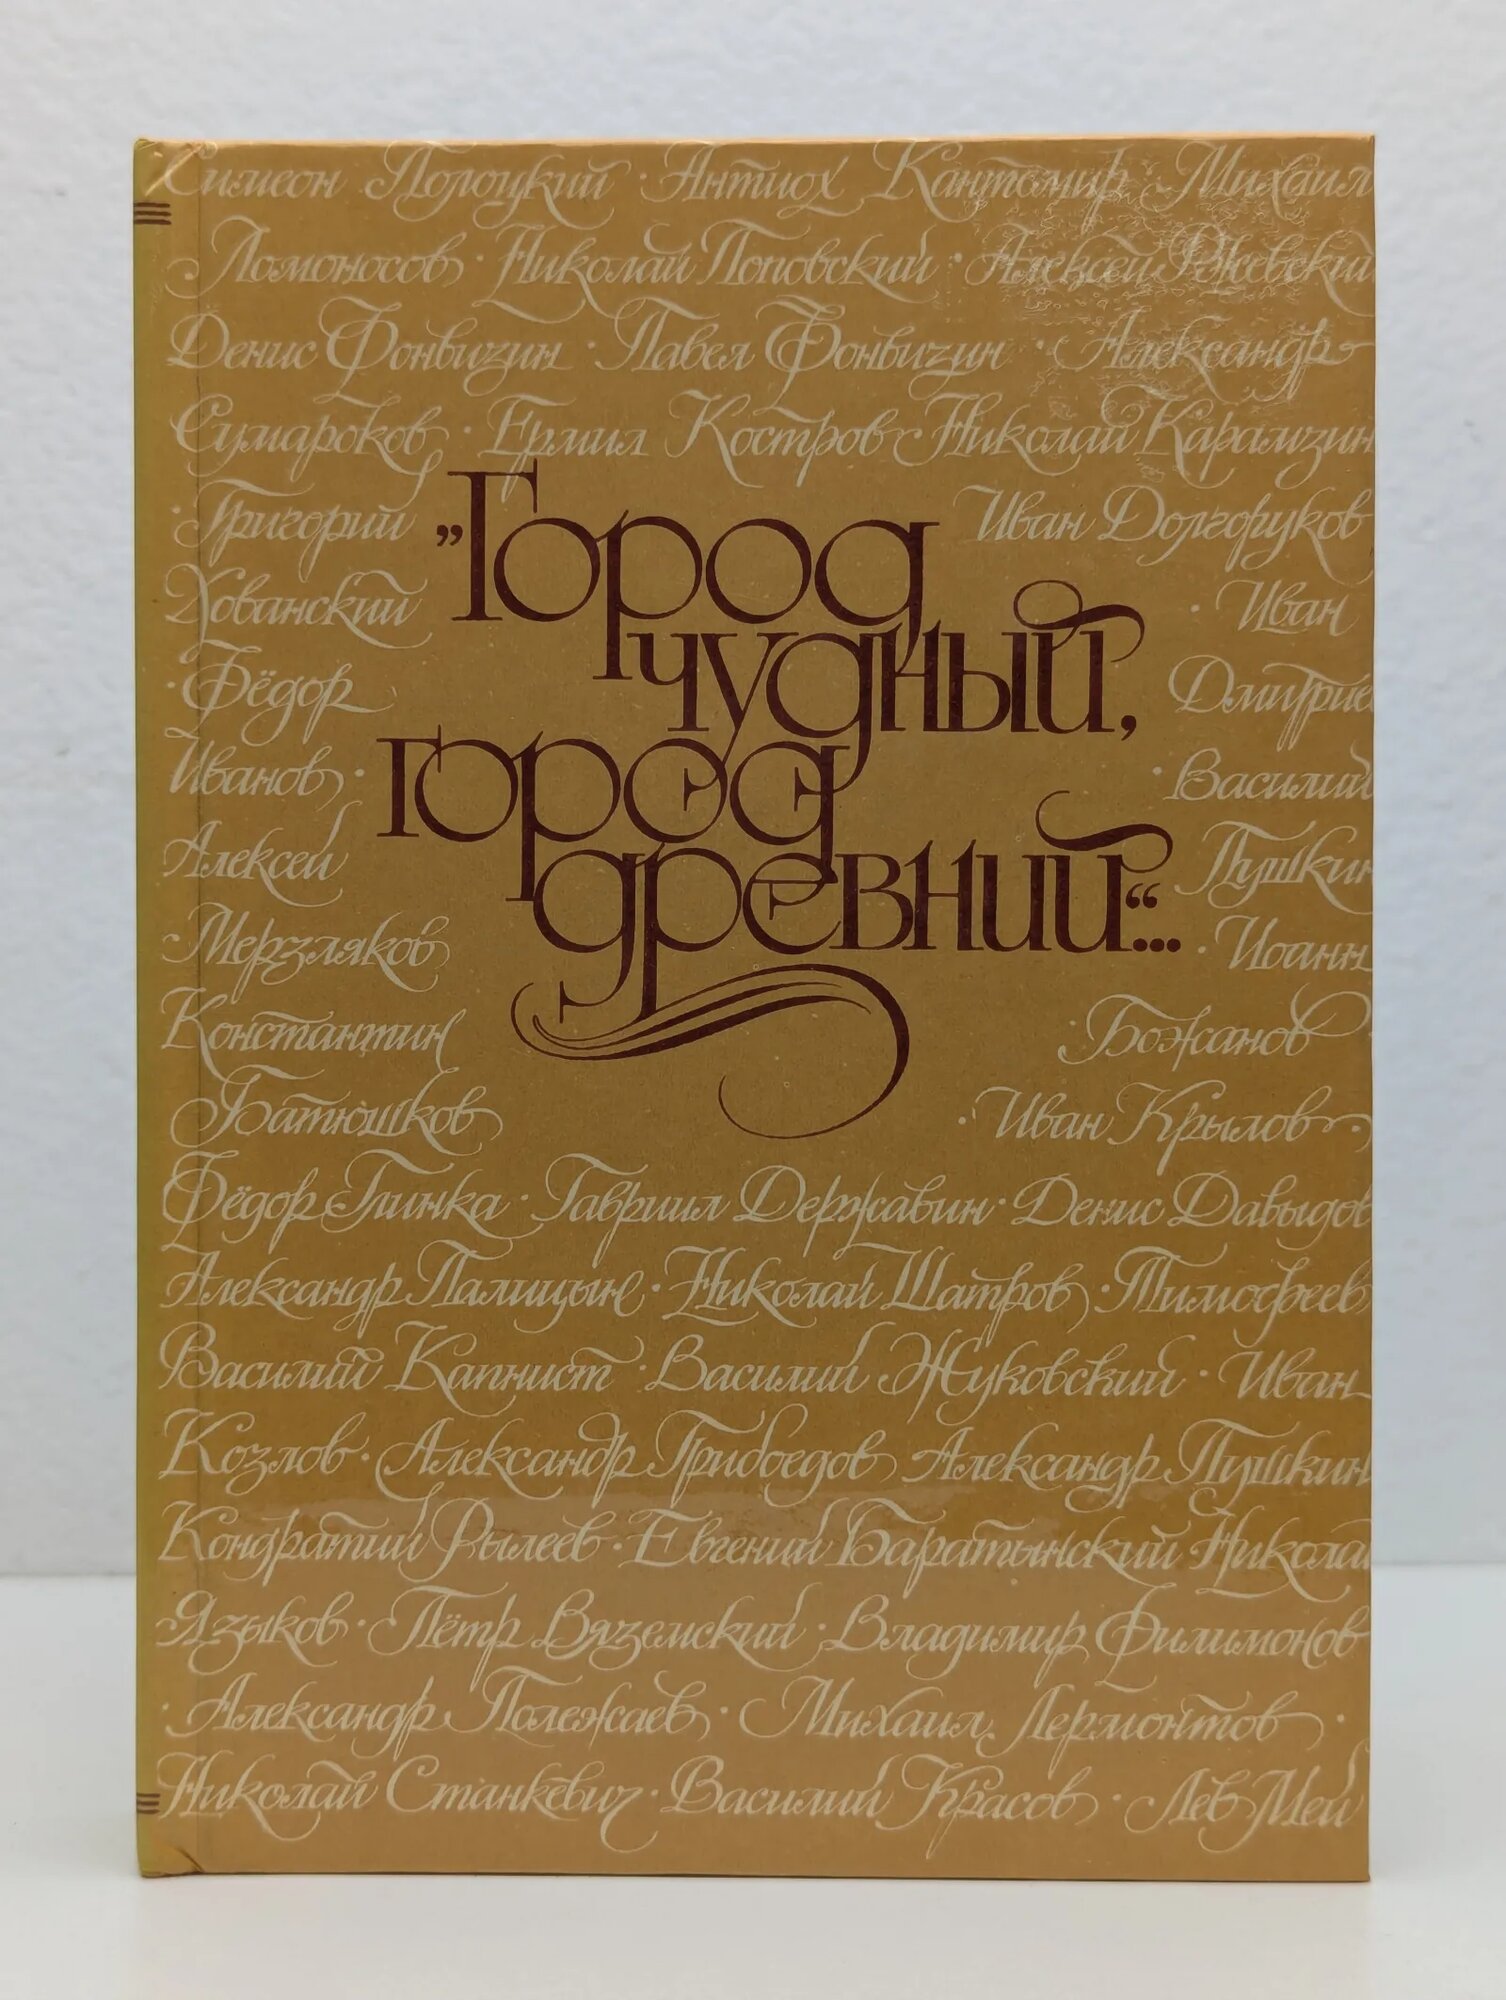 Симеон Полоцкий · Антиох Кантемир · Михаил
Ломоносов · Николай Поповский · Алексей Ржевский
Денис Фонвизин · Павел Фонвизин · Александр
Сумароков · Ермил Костров · Николай Карамзин
· Григорий
Иван Долгоруков
Хованский
· Иван
· Фёдор
Дмитриев
Иванов ·
· Василий
Алексей
Пушкин
Мерзляков
· Иоанн
Константин
Божанов
Батюшков
· Иван Крылов ·
„Город
чудный,
город
древний“...
Фёдор Глинка · Гавриил Державин · Денис Давыдов
Александр Палицын · Николай Шатров · Тимофеев
Василий Капнист · Василий Жуковский · Иван
Козлов · Александр Грибоедов · Александр Пушкин
Кондратий Рылеев · Евгений Баратынский · Николай
Языков · Пётр Вяземский · Владимир Филимонов
· Александр Полежаев · Михаил Лермонтов ·
Николай Станкевич · Василий Красов · Лев Мей